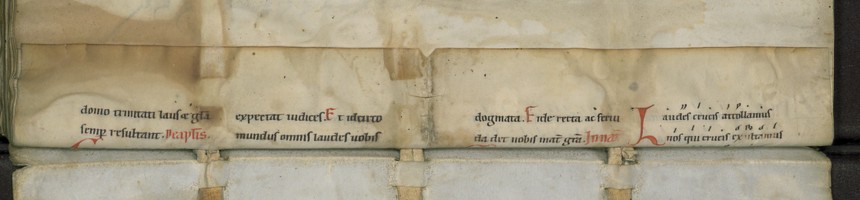 domo trinitati laus ⁊ glā
semp resultant. Psapłis.
expectat iudices. Et ideirco
mundus omnis laudes uobis
dogmata. Fide recta ac seriu
da det nobis mat̄ grā. Jonas
Laudes crucis attollamus
nos qui crucis exultamus